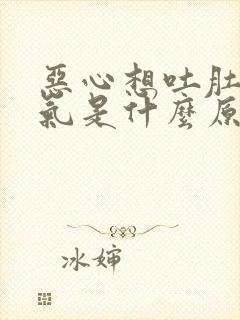 惡心想吐肚
氣是什麼原
冰婶